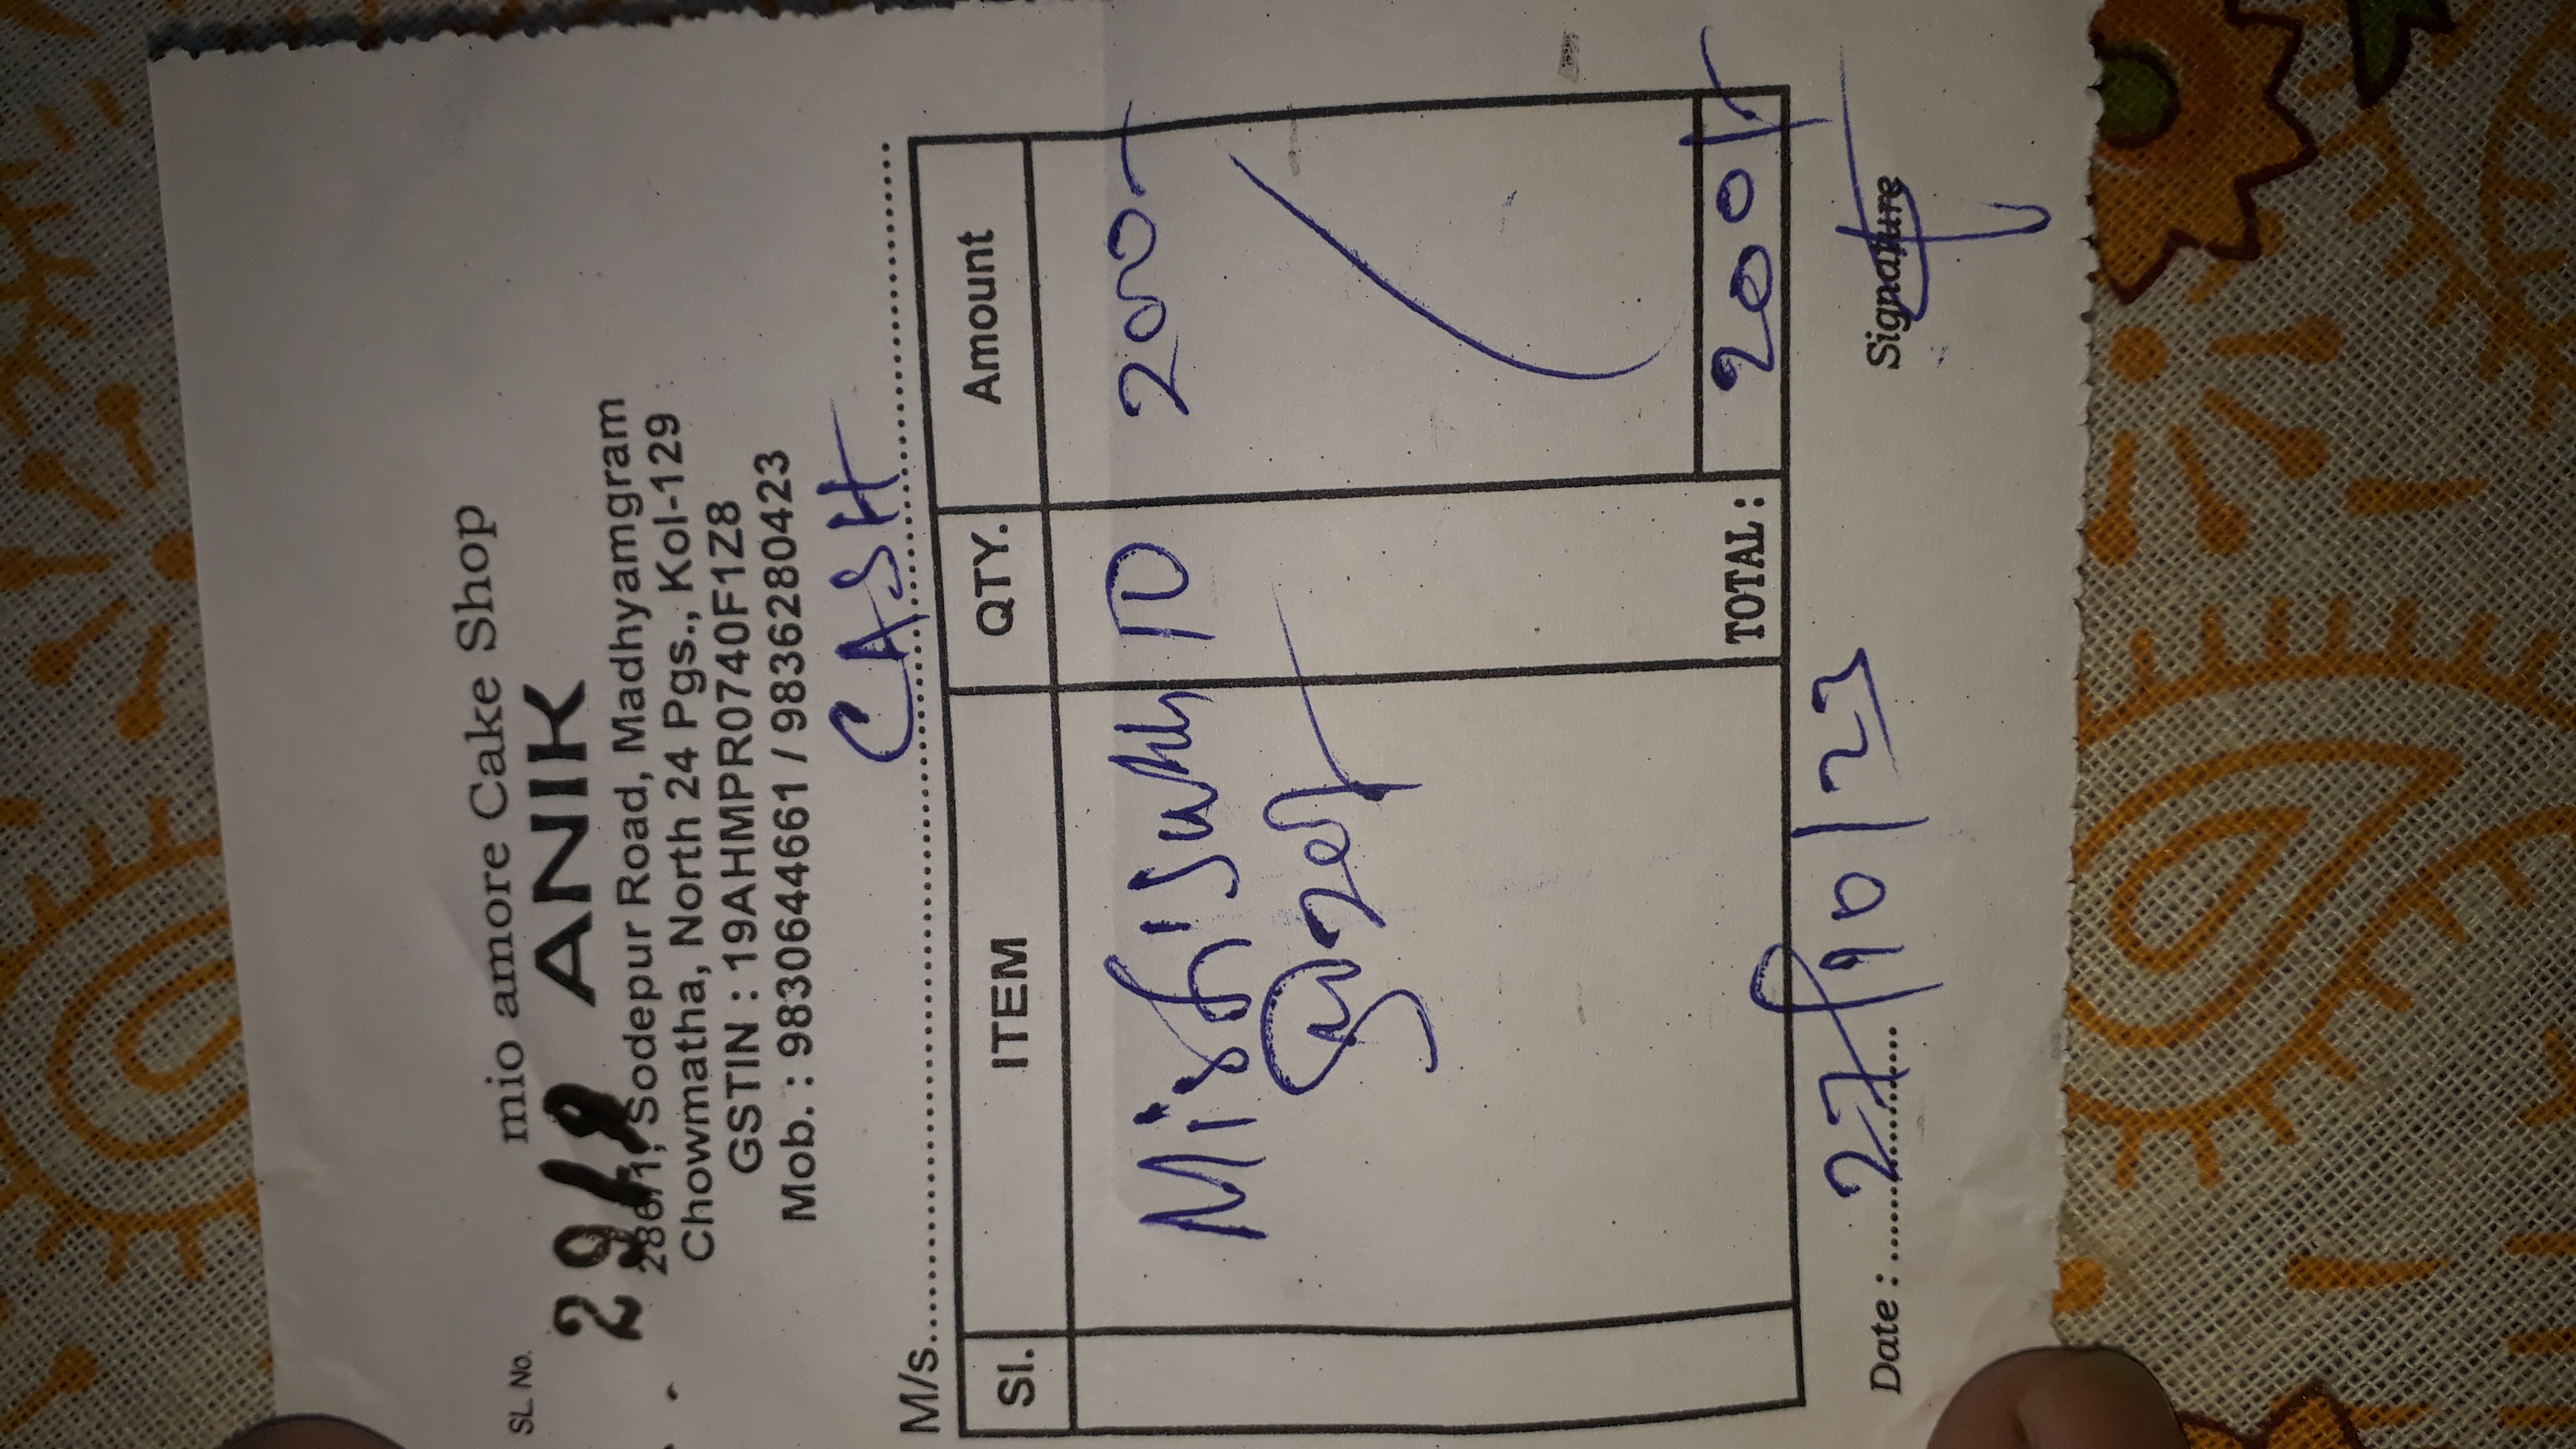 mio amore Cake Shop
SL. No.
ANIK
286/1, Sodepur Road, Madhyamgram
Chowmatha, North 24 Pgs., Kol-129
GSTIN : 19AHMPR0740F1Z8
Mob. : 9830644661 / 9836280423
M/s. CASH
Sl. ITEM QTY. Amount
Misti 10 200-
TOTAL : 200/-
Date : 27/10/23
Signature